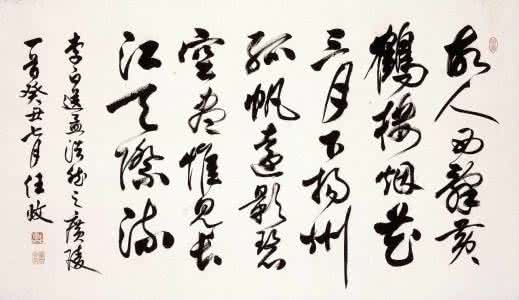 故人西辞黄
鹤楼烟花
三月下扬州
孤帆远影碧
空尽惟见长
江天际流
李白送孟浩然之广陵
一首癸丑七月任政